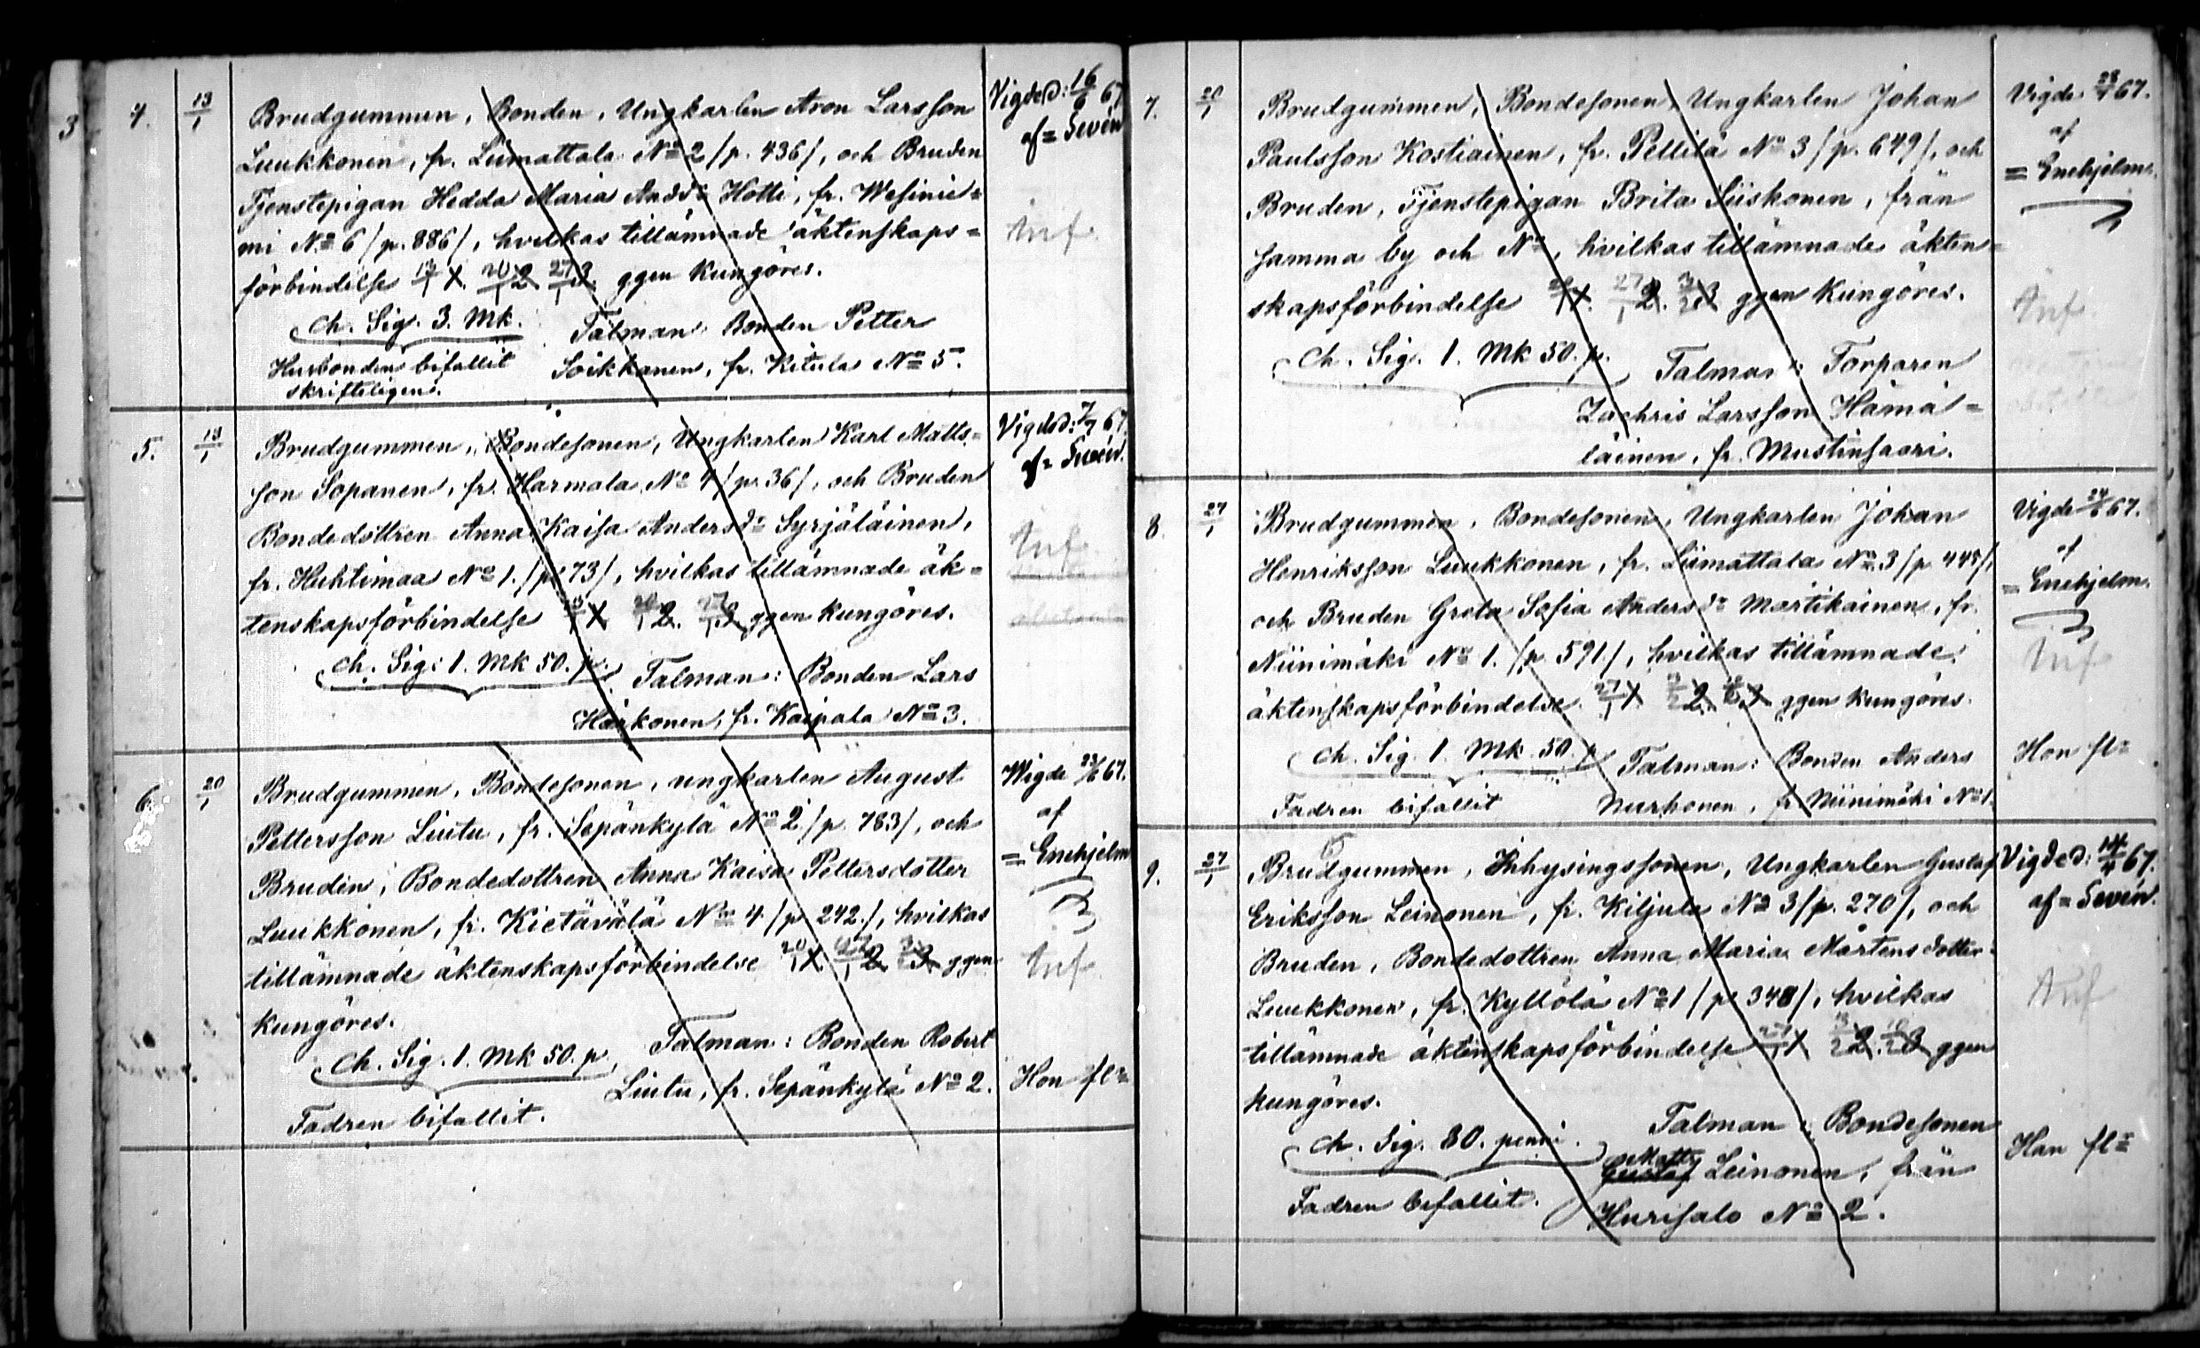 3
4. 13/1 Brudgummen, Bonden, Ungkarlen Aron Larsson
Luukkonen, fr. Liimattala No 2 /p. 436/, och Bruden
Tjenstepigan Hedda Maria Andsdr Hotti, fr. Wesinie=
mi No 6 /p. 886/, hvilkas tillämnade äktenskaps=
förbindelse 13/1 1. 20/1 2. 27/1 3. ggen kungöres.
Ch. Sig. 3. Mk. Talman: Bonden Petter
Husbonden bifallit Soikkanen, fr. Kitula No 5.
skrifteligen.
Vigde d: 16/6 67
af = Sevén
Inf.
5. 13/1 Brudgummen, Bondesonen, Ungkarlen Karl Matts=
son Sopanen, fr. Harmala No 4 /p. 36/, och Bruden
Bondedottren Anna Kaisa Andersdr Syrjäläinen,
fr. Huhtimaa No 1. /p. 73/, hvilkas tillämnade äk=
tenskapsförbindelse 13/1 1. 20/1 2. 27/1 3. ggen kungöres.
Ch. Sig: 1. Mk 50. p. Talman: Bonden Lars
Härkonen, fr. Kaipala No 3.
Vigde d: 7/7 67.
af = Sevén.
Inf.
6. 20/1 Brudgummen, Bondesonen, ungkarlen August
Pettersson Liutu, fr. Sepänkylä No 2 /p. 783/, och
Bruden, Bondedottren Anna Kaisa Pettersdotter
Luukkonen, fr. Kietävälä No 4 /p. 242./, hvilkas
tillämnade äktenskapsförbindelse 20/1 1. 27/1 2. 3/2 3. ggen
kungöres.
Talman: Bonden Robert
Ch. Sig. 1. Mk 50. p.
Liutu, fr. Sepänkylä No 2.
Fadren bifallit.
Wigde 23/6 67.
af
= Enehjelm
Inf.
Hon fl=
7. 20/1 Brudgummen, Bondesonen, Ungkarlen Johan
Paulsson Kostiainen, fr. Pellilä No 3 /p. 649/, och
Bruden, Tjenstepigan Brita Siiskonen, från
samma by och No, hvilkas tillämnade äkten=
skapsförbindelse 20/1 1. 27/1 2. 3/2 3. ggen kungöres.
Ch. Sig. 1. Mk 50. p. Talman: Torparen
Zachris Larsson Hämä=
läinen, fr. Mustinsaari.
Vigde 67.
af
= Enehjelm.
Inf.
8. 27/1 Brudgummen, Bondesonen, Ungkarlen Johan
Henriksson Luukkonen, fr. Liimattala No 3 /p. 445/,
och Bruden Greta Sofia Andersdr Martikainen, fr.
Niinimäki No 1. /p. 591./, hvilkas tillämnade
äktenskapsförbindelse 27/1 1. 3/2 2. 3. ggen kungöres.
Ch. Sig. 1. Mk. 50. p. Talman: Bonden Anders
Fadren bifallit Nurhonen, fr. Niinimäki No 1.
Vigde 24/6 67.
af
= Enehjelm.
Inf
Hon fl=
9. 27/1 Brudgummen, Inhysingssonen, Ungkarlen Gustaf
Eriksson Leinonen, fr. Kiljula No 3 /p. 270/, och
Bruden, Bondedottren Anna Maria Mårtensdotter
Luukkonen, fr. Kyllölä No 1 /p. 348/, hvilkas
tillämnade äktenskapsförbindelse 27/1 1. 3/2 2. 10/2 3. ggen
kungöres.
Talman: Bondesonen
Ch. Sig. 80. penni.
Matts
Gustaf Leinonen, från
Fadren bifallit. Hurisalo No 2.
Vigde d: 14/4 67.
af = Sevén.
Inf
Han fl=